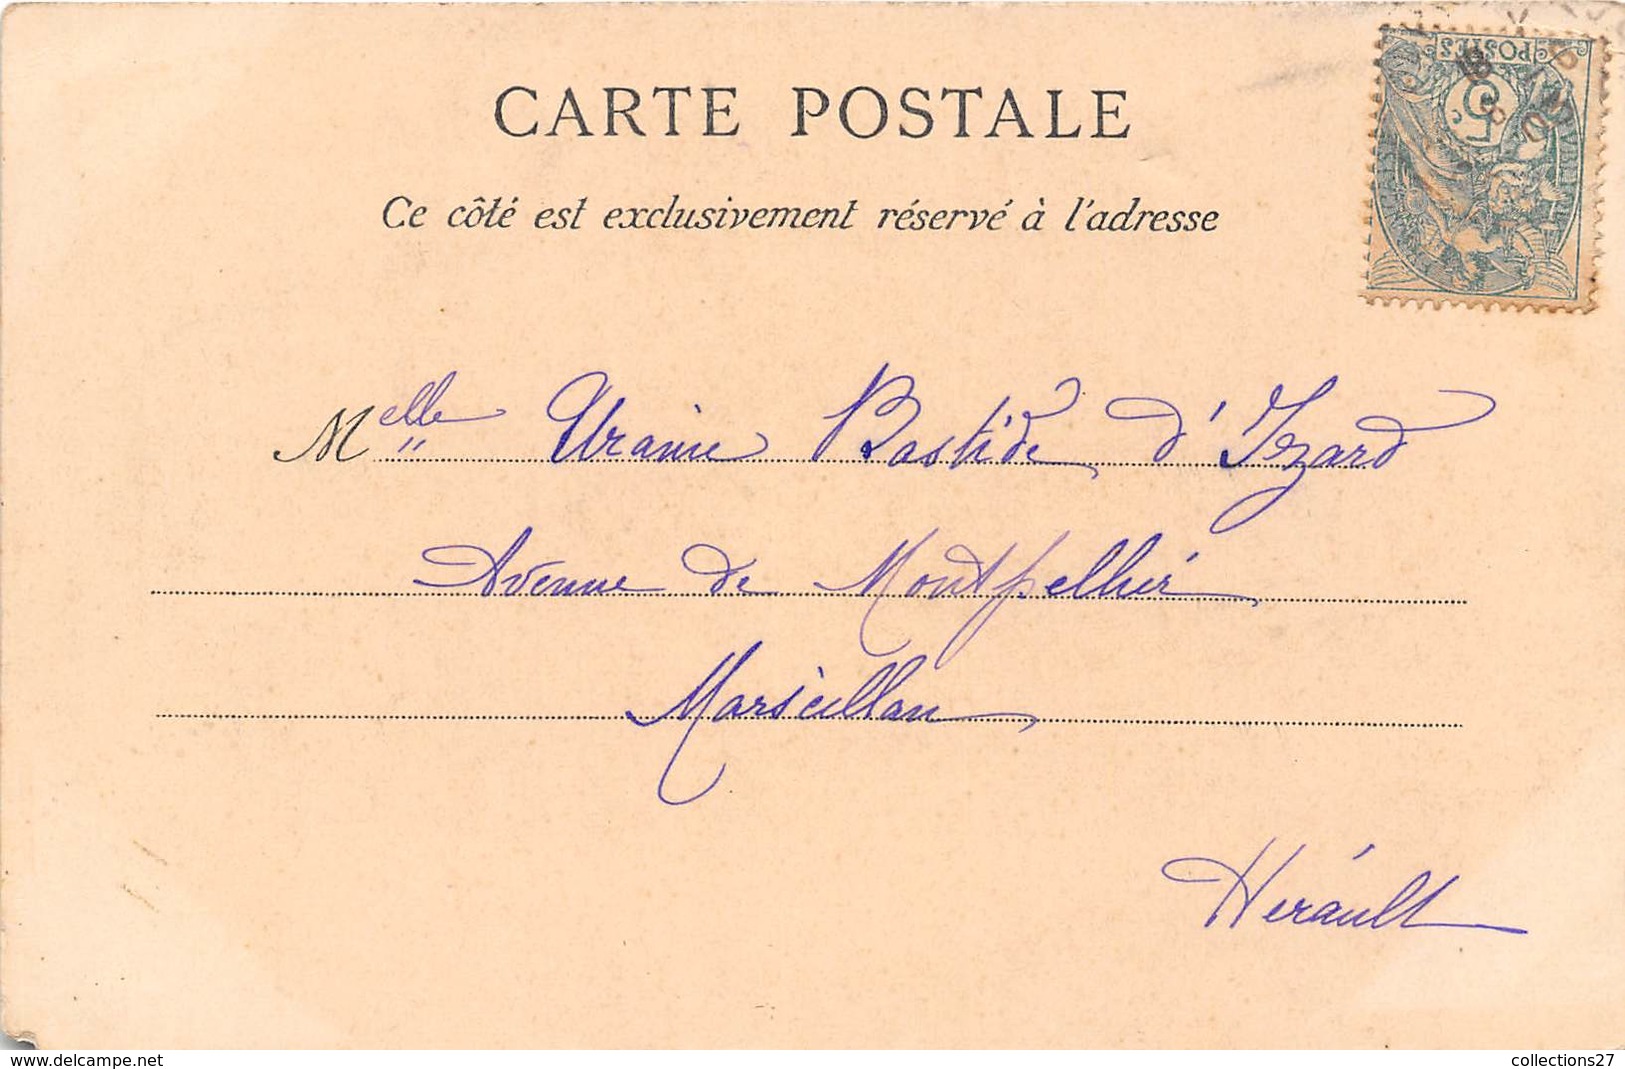 POSTES
5
CARTE POSTALE
Ce côté est exclusivement réservé à l'adresse
Melle Uranie Bastide d'Izard
Avenue de Montpellier
Marseillan
Hérault
www.delcampe.net
collections27